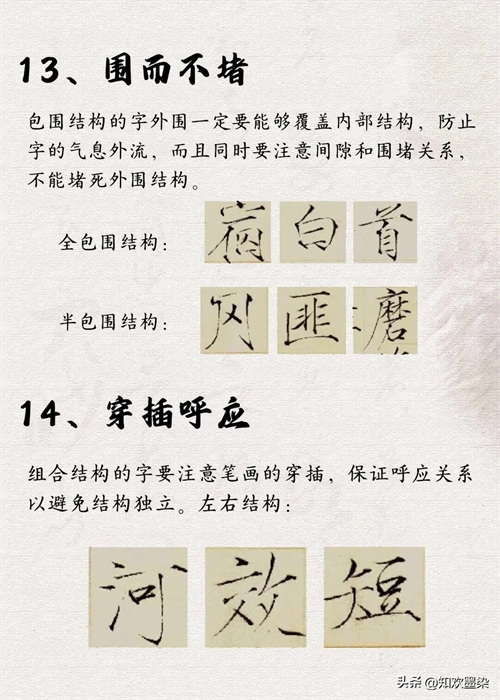 13、围而不堵
包围结构的字外围一定要能够覆盖内部结构，防止
字的气息外流，而且同时要注意间隙和围堵关系，
不能堵死外围结构。
全包围结构： 白 首
半包围结构： 冈 匪 磨
14、穿插呼应
组合结构的字要注意笔画的穿插，保证呼应关系
以避免结构独立。左右结构：
河 效 短
头条 @知欢墨染